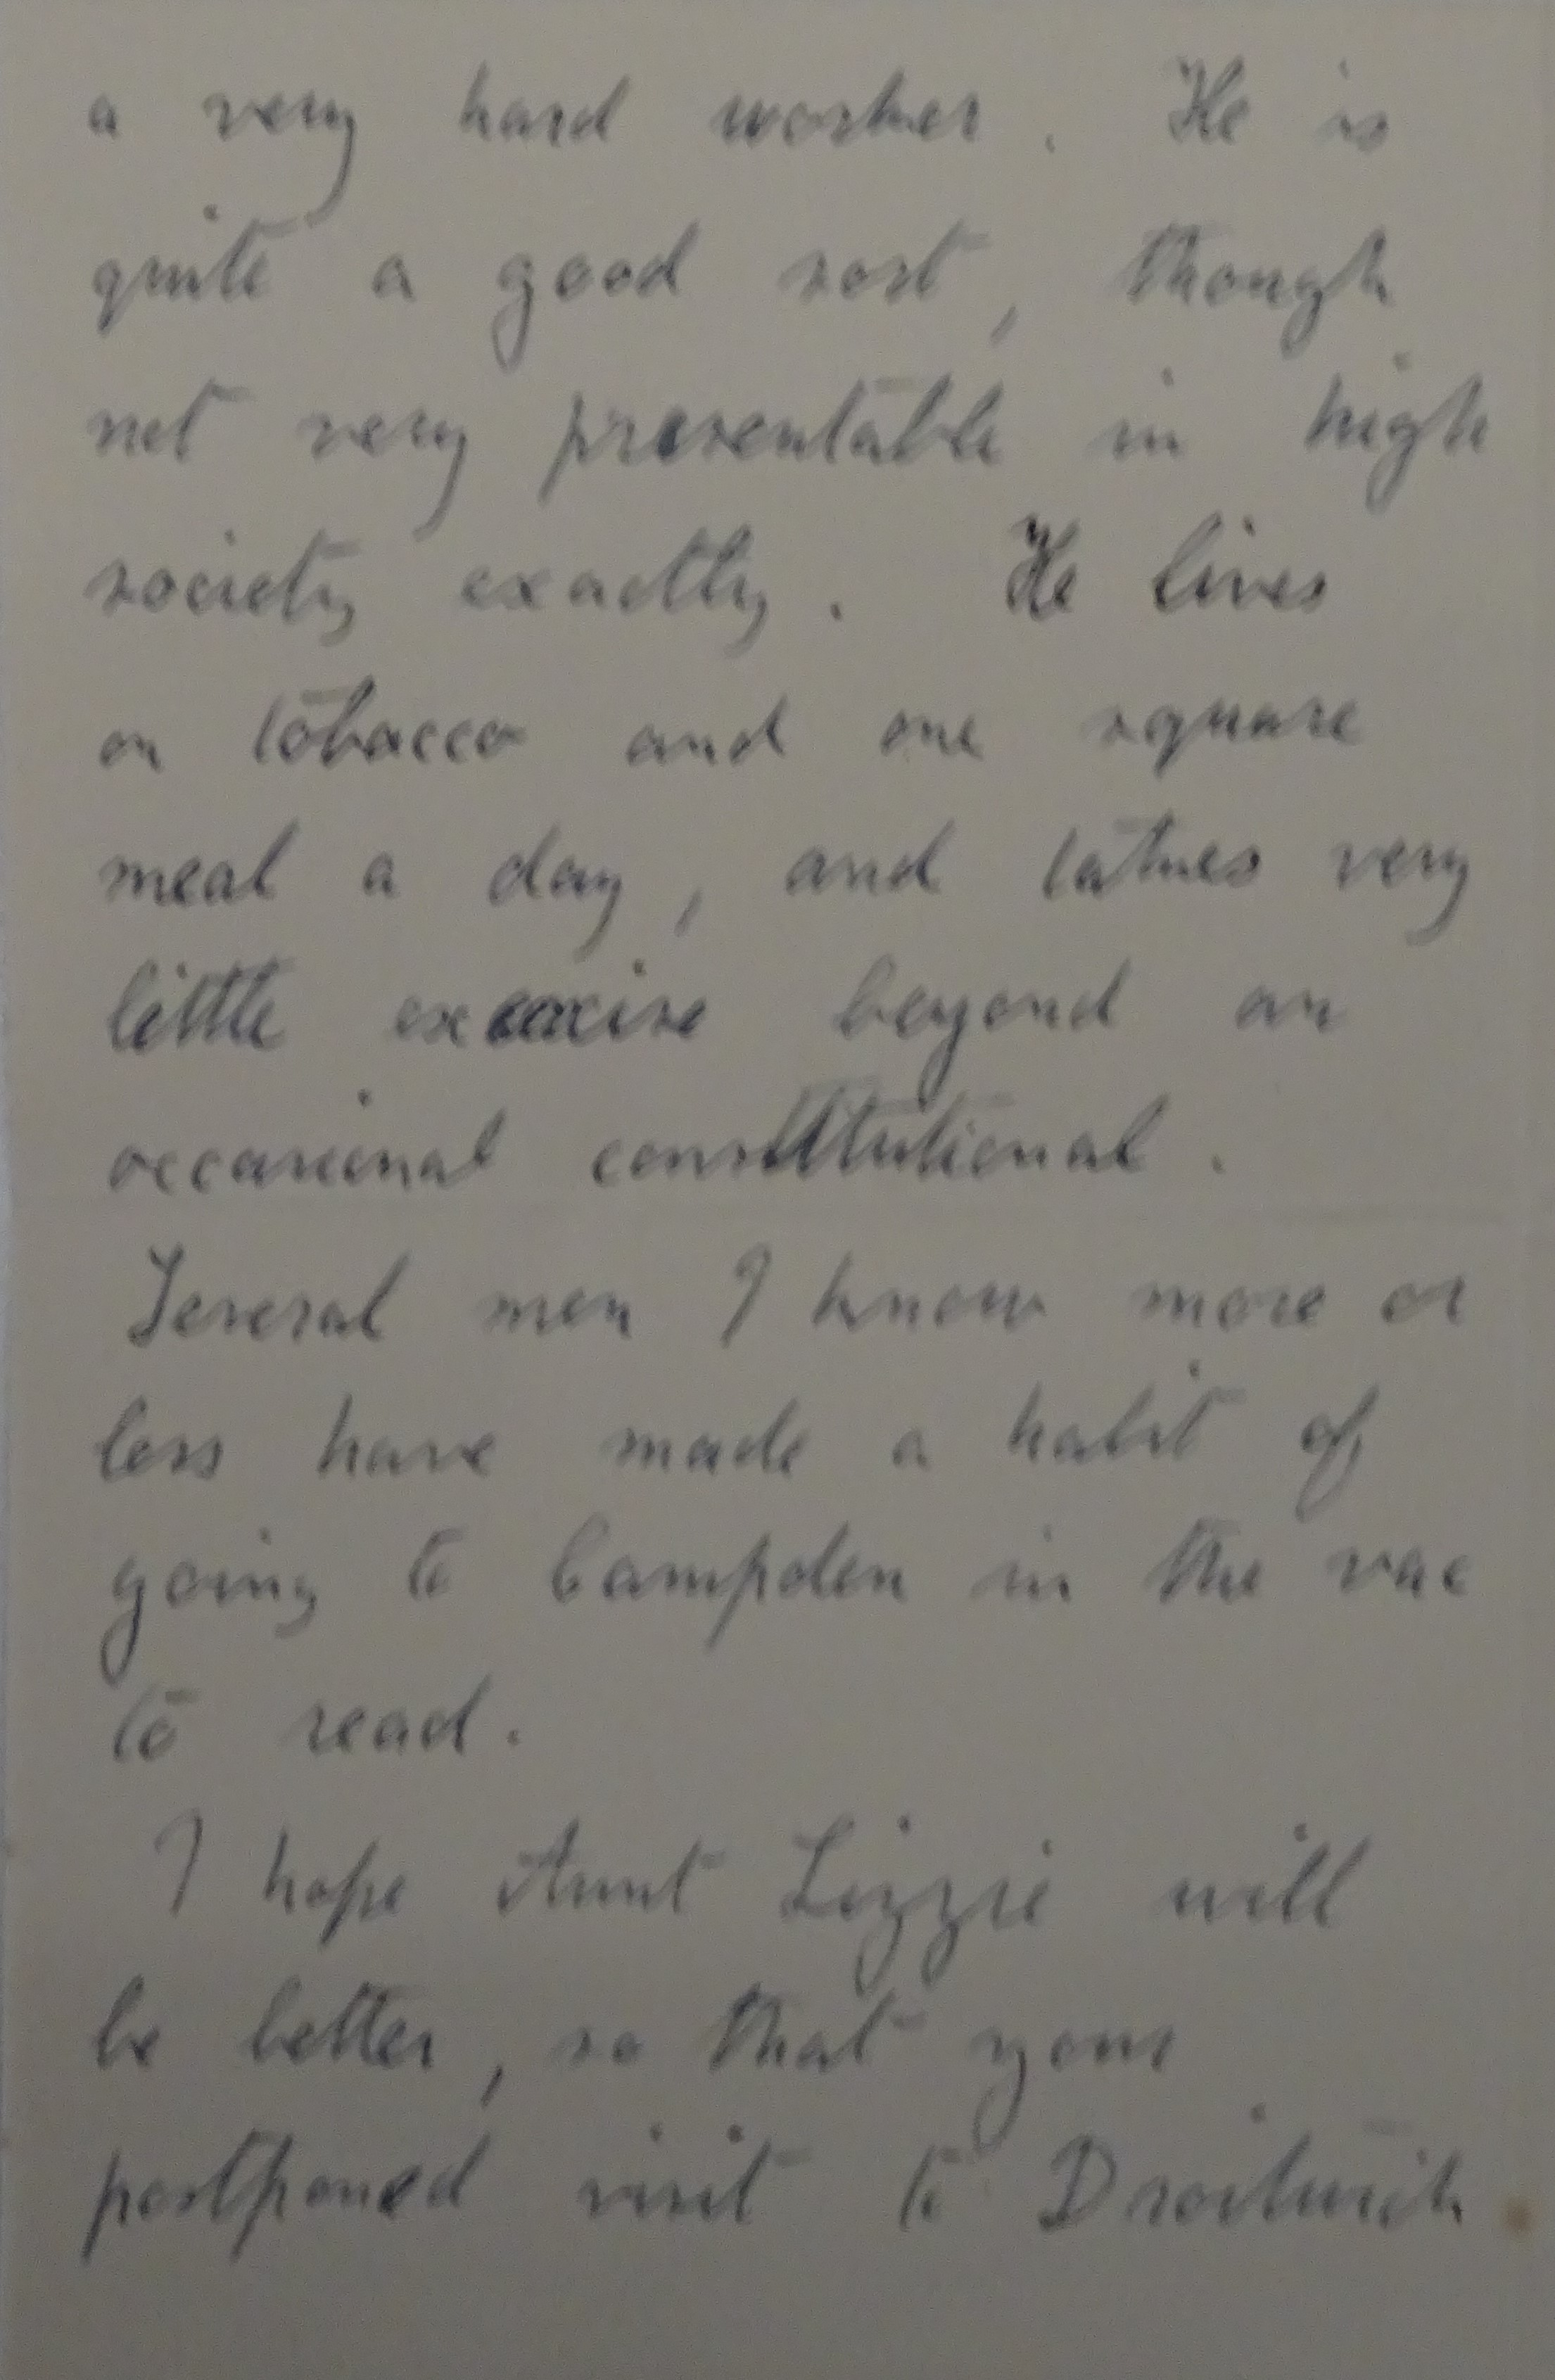 a very hard worker. He is
quite a good sort, though
not very presentable in high
society exactly. He lives
on tobacco and one square
meal a day, and takes very
little exercise beyond an
occasional constitutional.
Several men I know more or
less have made a habit of
going to Campden in the vac
to read.
I hope Aunt Lizzie will
be better, so that your
postponed visit to Droitwich